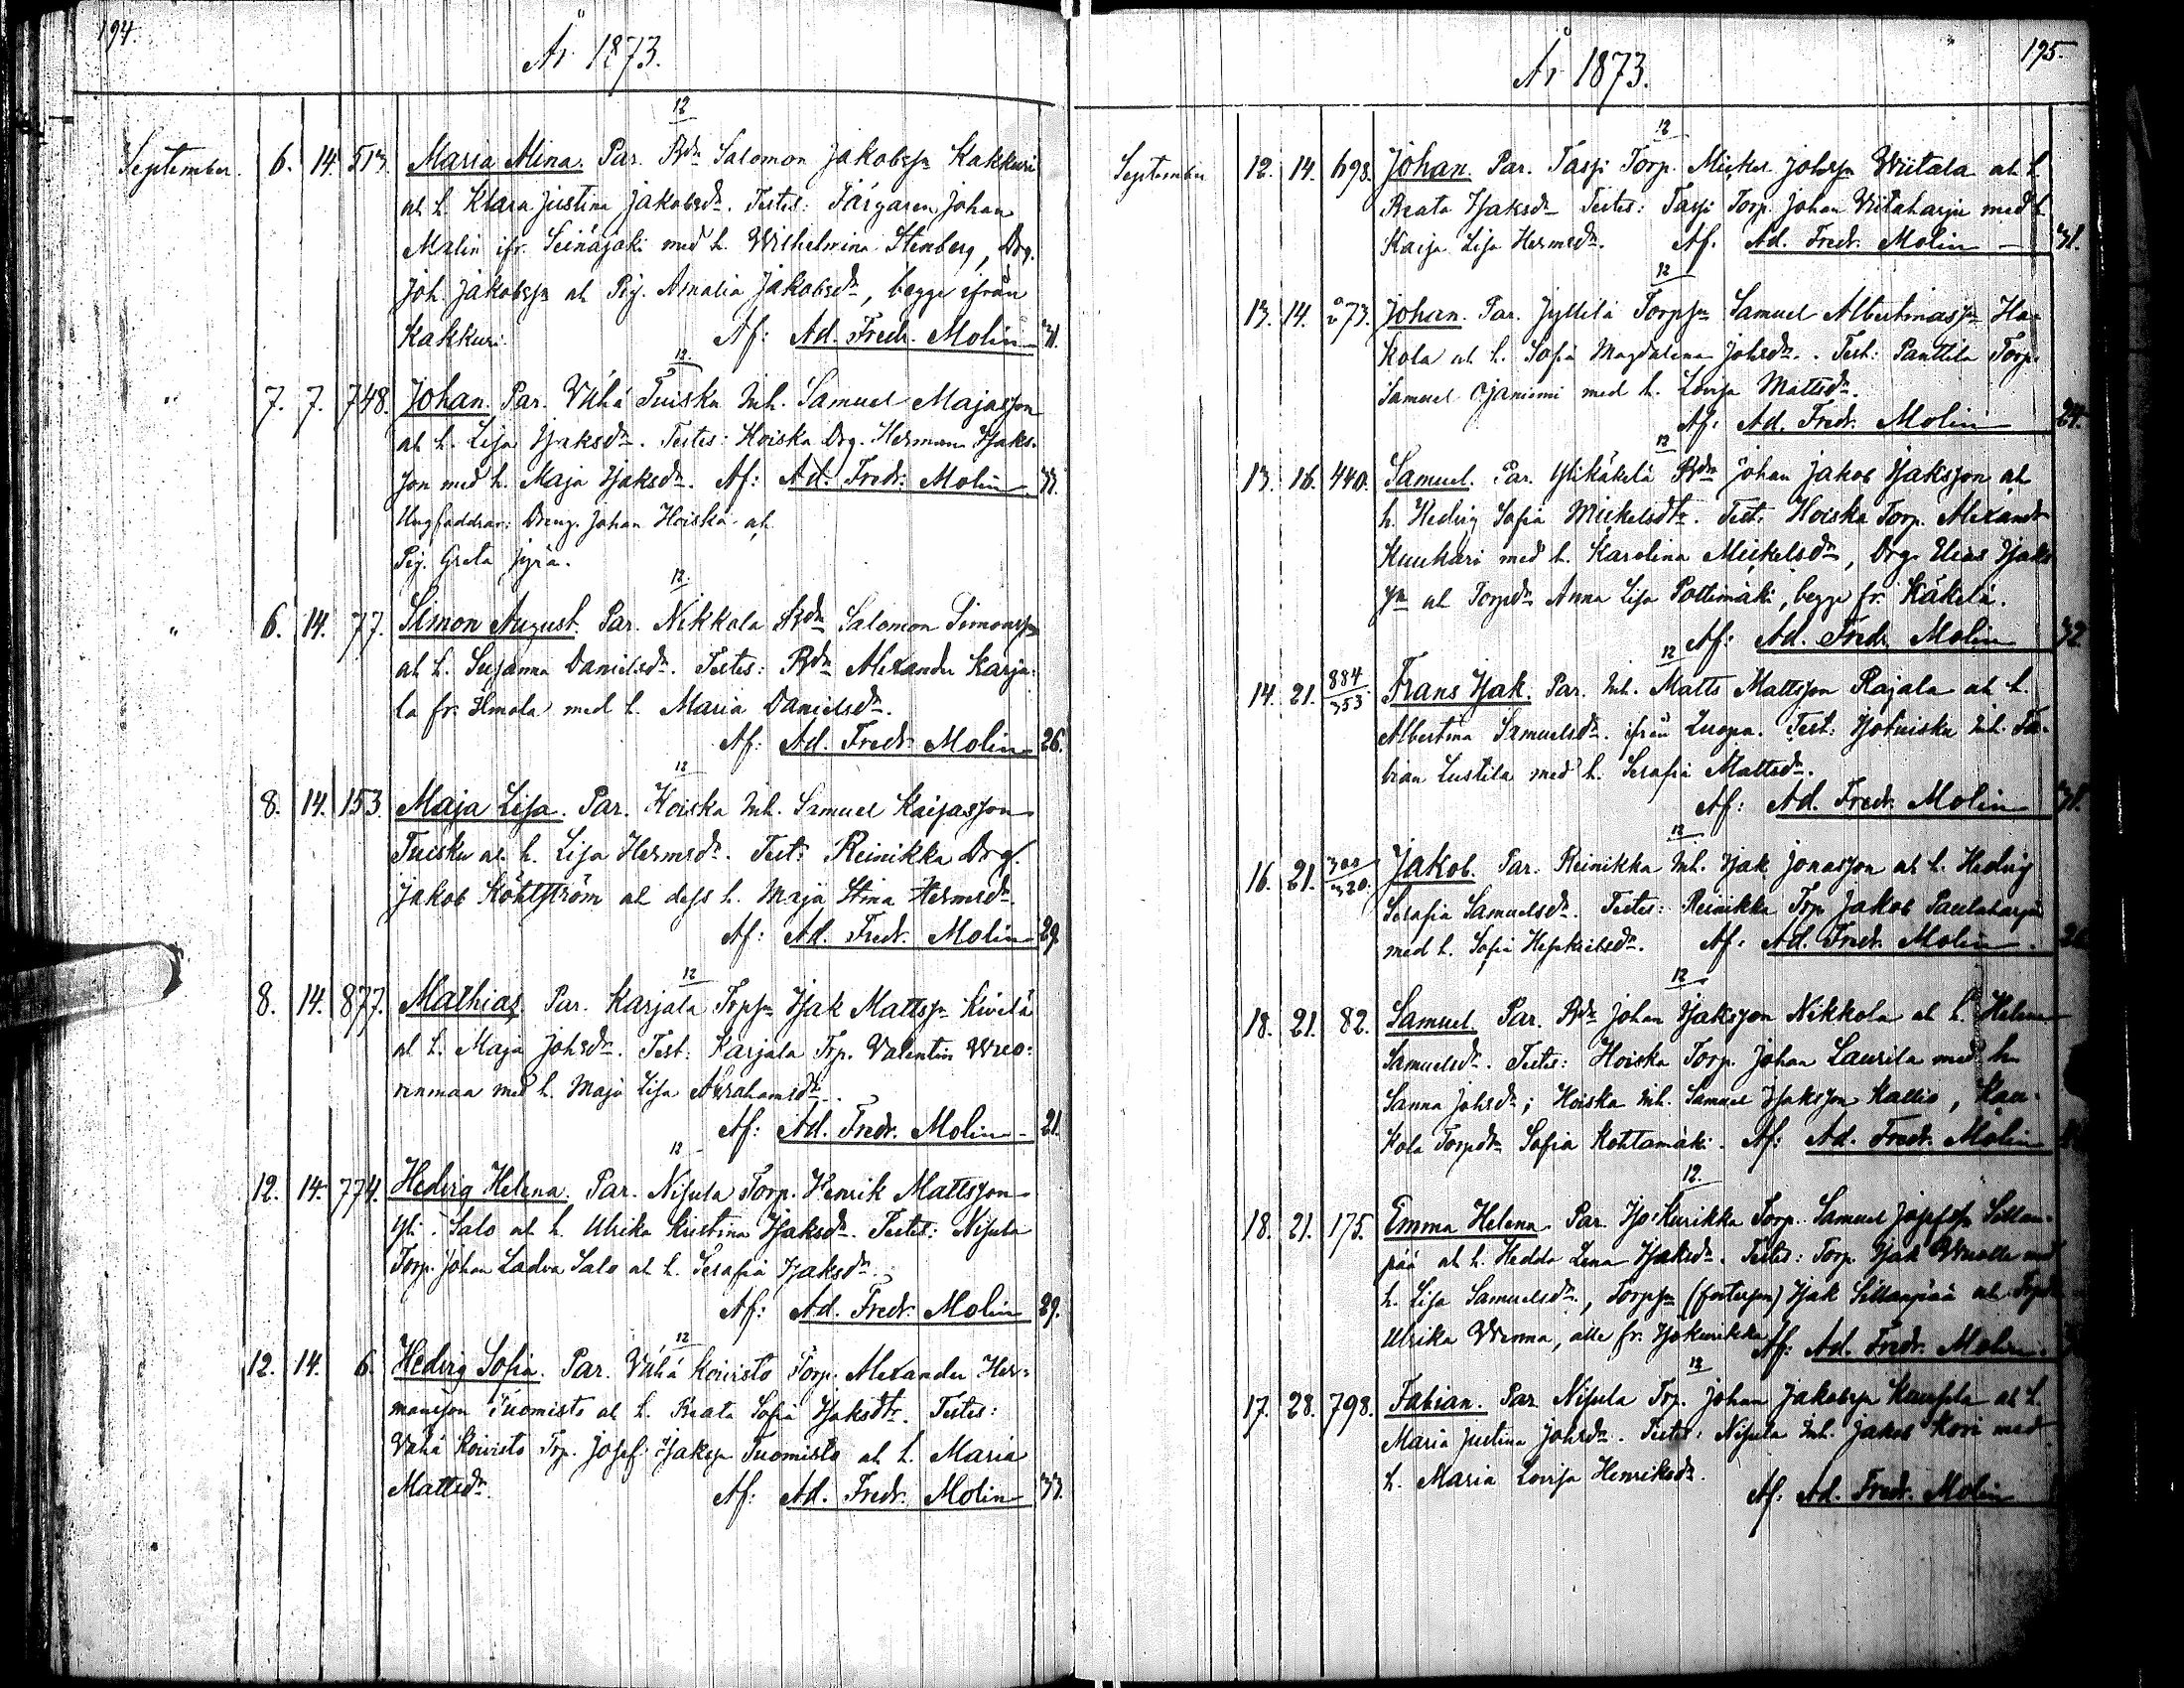 194.
År 1873.
12
September. 6. 14. 513. Maria Alina. Par. Bdn Salomon Jakobssn Kakkuri
at h. Klara Justina Jakobsdr. Testes: Färgaren Johan
Malin ifr. Seinäjoki med h. Wilhelmina Stenberg, Drg.
Joh. Jakobssn at Pig. Amalia Jakobsdr, begge ifrån
Kakkuri. Af: Ad. Fredr. Molin 31.
12.
" 7. 7. 748. Johan. Par. Vähä Tuisku Inh. Samuel Majasson
at h. Lisa Isaksdr. Testes: Hoiska Drg. Herman Isaks-
son med h. Maja Isaksdr. Af: Ad. Fredr. Molin 33.
Ungfaddrar: Dreng. Johan Hoiska at
Pig. Greta Jyrä.
12.
" 6. 14. 77. Simon August. Par. Nikkola Bdn Salomon Simonssn
at h. Susanna Danielsdr. Testes: Bdn Alexander Karja-
la fr. Ilmola med h. Maria Danielsdr.
Af: Ad. Fredr. Molin 26.
12
8. 14. 153. Maja Lisa. Par. Hoiska Inh. Samuel Kaijasson
Tuisku at h. Lisa Hermsdr. Test: Reinikka Drg.
Jakob Köhlström at dess h. Maja Stina Hermsdr.
Af: Ad. Fredr. Molin 29.
12
8. 14. 877. Mathias. Par. Karjala Torpsn Isak Mattssn Kivelä
at h. Maja Johsdr. Test: Karjala Trp. Valentin Wuo-
renmaa med h. Maja Lisa Abrahamsdr.
Af: Ad. Fredr. Molin 21.
12
12. 14. 774. Hedvig Helena. Par. Nisula Torp. Henrik Mattsson
Yli-Salo at h. Ulrika Kristina Isaksdr. Testes: Nisula
Torp. Johan Ladva Salo at h. Serafia Isaksdr.
Af: Ad. Fredr. Molin 29.
12
12. 14. 6. Hedvig Sofia. Par. Vähä Koivisto Torp. Alexander Her-
mansson Tuomisto at h. Beata Sofia Isaksdtr. Testes:
Vähä Koivisto Trp. Josef Isakssn Tuomisto at h. Maria
Mattsdr. Af: Ad. Fredr. Molin 33.
195.
År 1873.
12
September 12. 14. 698. Johan. Par. Tassi Torp. Mickel Johssn Wiitala at h.
Beata Isaksdr Testes: Tassi Torp. Johan Viitaharju med h.
Kaisa Lisa Hermsdr. Af. Ad. Fredr. Molin 31.
12
13. 14. 273. Johan. Par. Jyllilä Torpsn Samuel Albertinassn Ha-
kola at h. Sofia Magdalena Johsdr. Test: Panttila Torp.
Samuel Ojaniemi med h. Lovisa Mattsdr.
Af: Ad. Fredr. Molin 24.
12
13. 16. 440. Samuel. Par. Ylikäkelä Bdn Johan Jakob Isaksson at
h. Hedvig Sofia Mickelsdtr. Test: Hoiska Torp. Alexander
Kuukari med h. Karolina Mickelsdr, Drg. Elias Isaks
sn at Torpdr Anna Lisa Pottimäki, begge fr. Käkelä.
Af: Ad. Fredr. Molin 32.
12
14. 21. 884/353. Frans Isak. Par. Inh. Matts Mattsson Rajala at h.
Albertina Samuelsdr. ifrån Luopa. Test: Isotuisku Inh. Fa-
bian Lustila med h. Serafia Mattsdr.
Af: Ad. Fredr. Molin 31.
12
16. 21. 300/320. Jakob. Par. Reinikka Inh. Isak Jonasson at h. Hedvig
Serafia Samuelsdr. Testes: Reinikka Trp Jakob Pauluharju
med h. Sofia Hesekielsdr. Af: Ad. Fredr. Molin.
12
18. 21. 82. Samuel. Par. Bdn Johan Isaksson Nikkola at h. Helena
Samuelsdr. Testes: Hoiska Torp. Johan Laurila med h.
Sanna Johsdr; Hoiska Inh. Samuel Isaksson Kallio, Kau-
kola Torpdr Sofia Kohtamäki. Af: Ad. Fredr. Molin
12.
18. 21. 175. Emma Helena. Par. Iso-Kurikka Torp. Samuel Josefssn Sillan-
pää at h. Hedda Lena Isaksdr. Testes: Torp. Isak Wuolle med
h. Lisa Samuelsdr., Torpsn (fosterson) Isak Sillanpää at Trpdr
Ulrika Werma, alle fr. Isokurikka Af: Ad. Fredr. Molin
12
17. 28. 798. Fabian. Par. Nisula Trp. Johan Jakobssn Kaupila at h.
Maria Justina Johsdr. Testes: Nisula Inh. Jakob Kori med
h. Maria Lovisa Henriksdr.
Af: Ad. Fredr. Molin